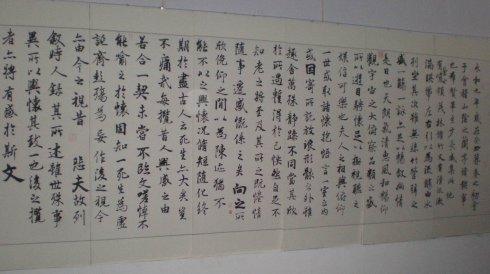 永和九年歲在癸丑暮春之初會
于會稽山陰之蘭亭脩稧事
也群賢畢至少長咸集此地
有崇山峻領茂林脩竹又有清流激
湍暎帶左右引以為流觴曲水
列坐其次雖無絲竹管弦之
盛一觴一詠亦足以暢敘幽情
是日也天朗氣清惠風和暢仰
觀宇宙之大俯察品類之盛
所以遊目騁懷足以極視聽之
娛信可樂也夫人之相與俯仰
一世或取諸懷抱悟言一室之內
或因寄所託放浪形骸之外雖
趣舍萬殊靜躁不同當其欣
於所遇暫得於己快然自足不
知老之將至及其所之既惓情
隨事遷感慨係之矣向之所
欣俛仰之間以為陳迹猶不
能不以之興懷況脩短隨化終
期於盡古人云死生亦大矣豈
不痛哉每攬昔人興感之由
若合一契未嘗不臨文嗟悼不
能喻之於懷固知一死生為虛
誕齊彭殤為妄作後之視今
亦由今之視昔 悲夫故列
敘時人錄其所述雖世殊事
異所以興懷其致一也後之攬
者亦將有感於斯文